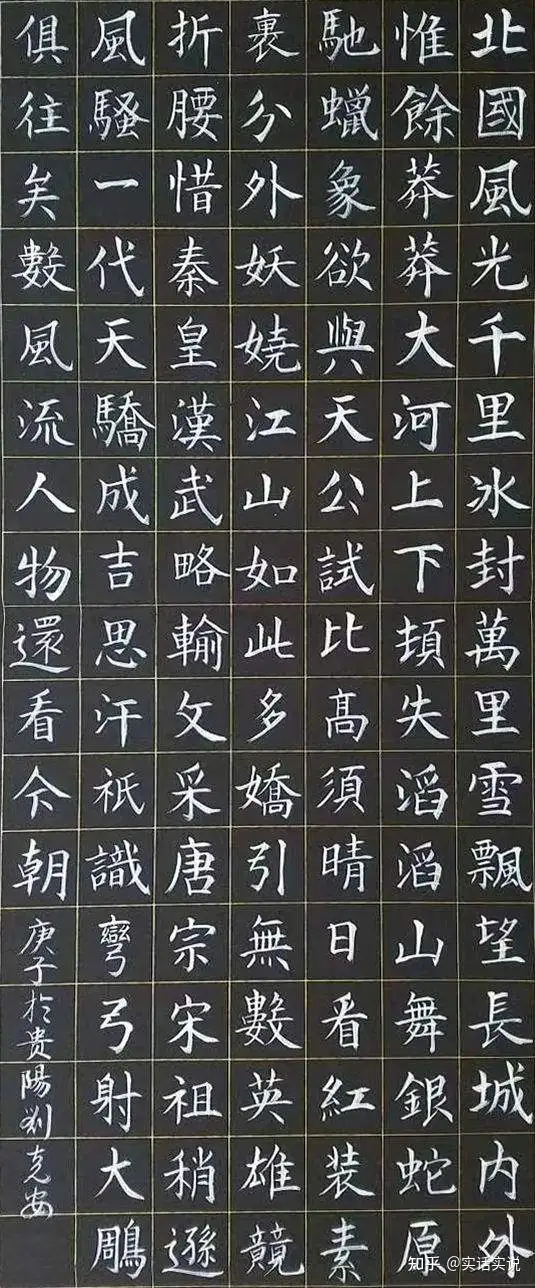 北國風光千里冰封萬里雪飄望長城内外
惟餘莽莽大河上下頓失滔滔山舞銀蛇原
馳蠟象欲與天公試比髙須晴日看紅装素
裹分外妖嬈江山如此多嬌引無數英雄競
折腰惜秦皇漢武略輸文采唐宗宋祖稍遜
風騷一代天驕成吉思汗祇識彎弓射大鵰
俱往矣數風流人物還看今朝
庚子於贵陽刘克安
知乎 @实话实说